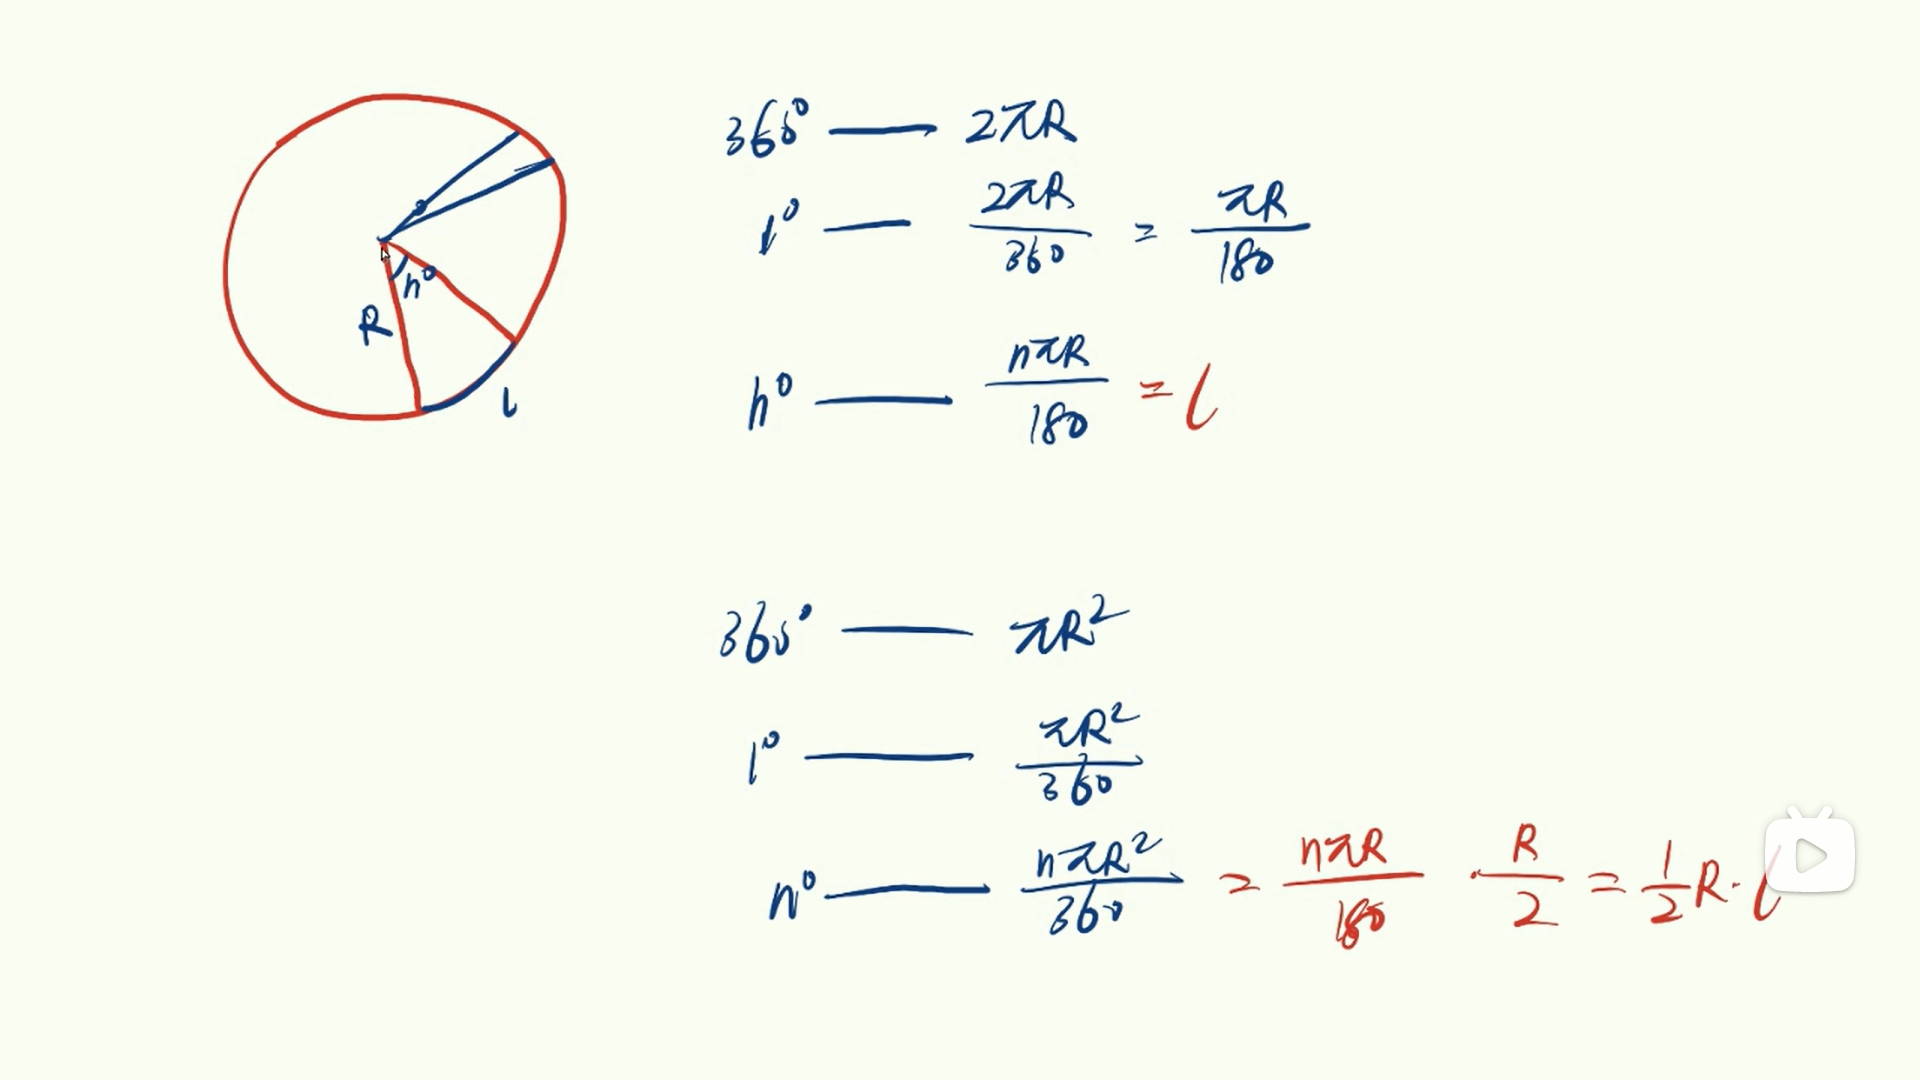 n°
R
l
360° — 2πR
1° — 2πR/360 = πR/180
n° — nπR/180 = l
360° — πR²
1° — πR²/360
n° — nπR²/360 = nπR/180 · R/2 = 1/2 R · l